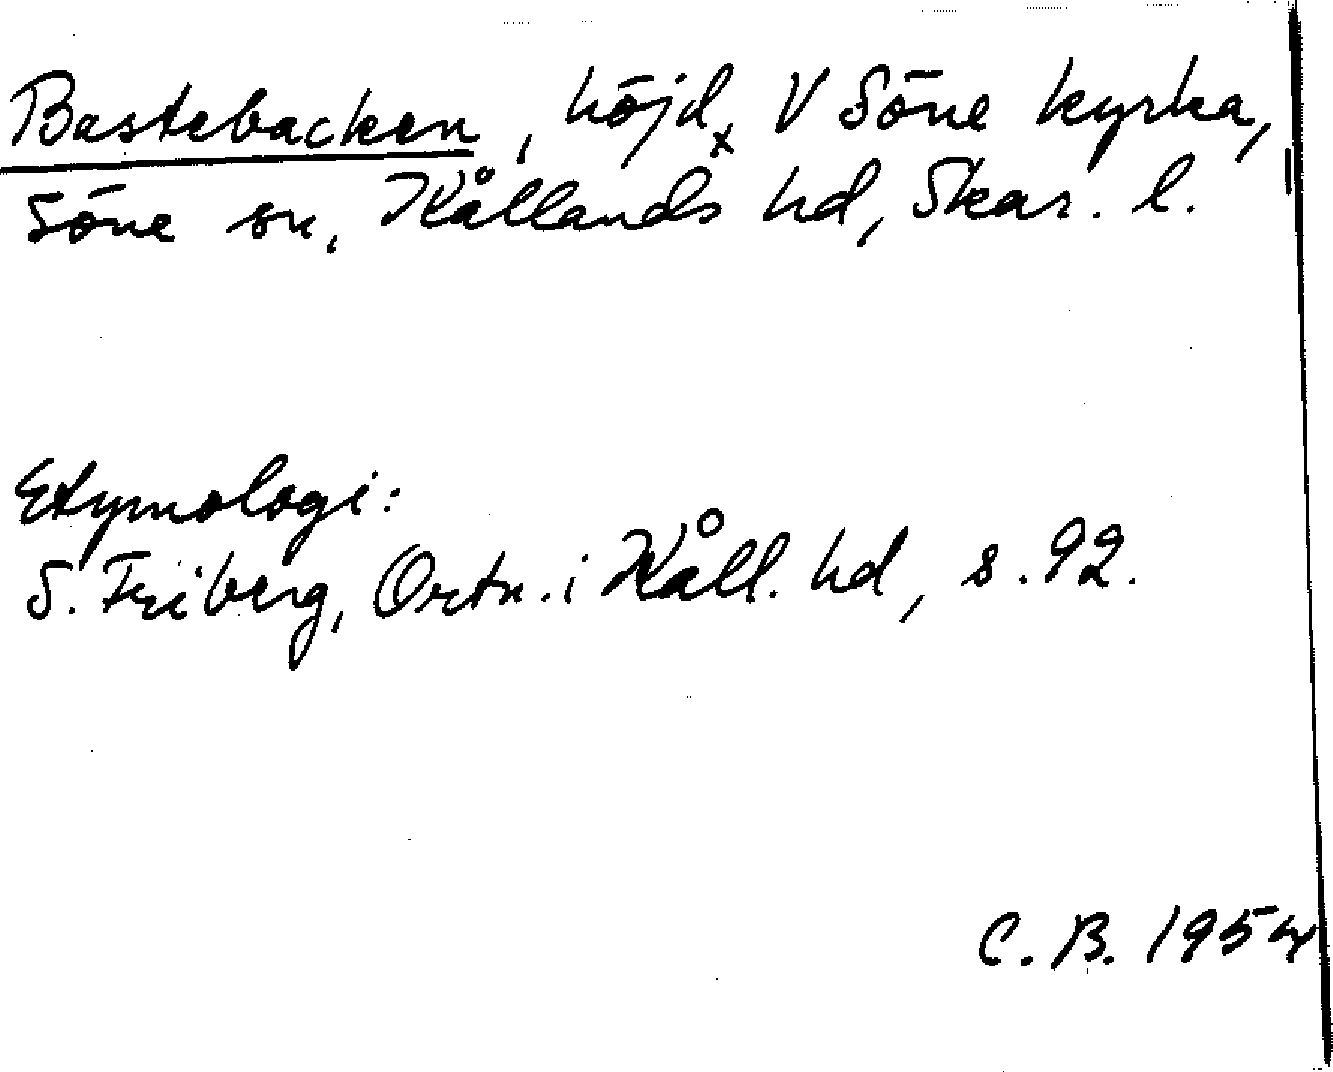 Bastebacken, höjd, V Söne kyrka,
Söne sn, Kållands hd, Skar. l.
Etymologi:
S. Friberg, Ortn. i Kåll. hd, s. 92.
C. B. 1954